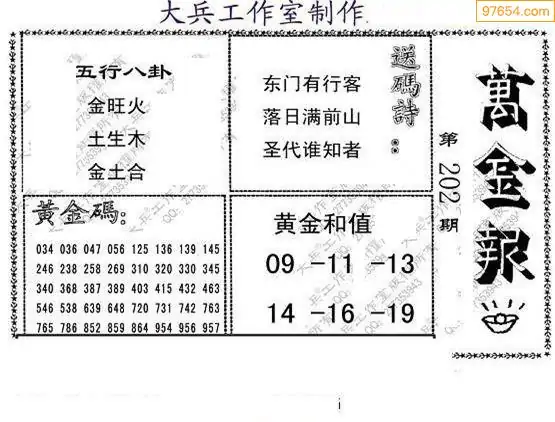 大兵工作室制作
97654.com
五行八卦
金旺火
土生木
金土合
送碼詩：
东门有行客
落日满前山
圣代谁知者
萬金報
第202期
黃金碼：
034 036 047 056 125 136 139 145
246 238 258 269 310 320 330 345
340 368 387 389 403 415 432 463
546 538 639 648 720 731 742 763
765 786 852 859 864 954 956 957
黄金和值
09 -11 -13
14 -16 -19
i